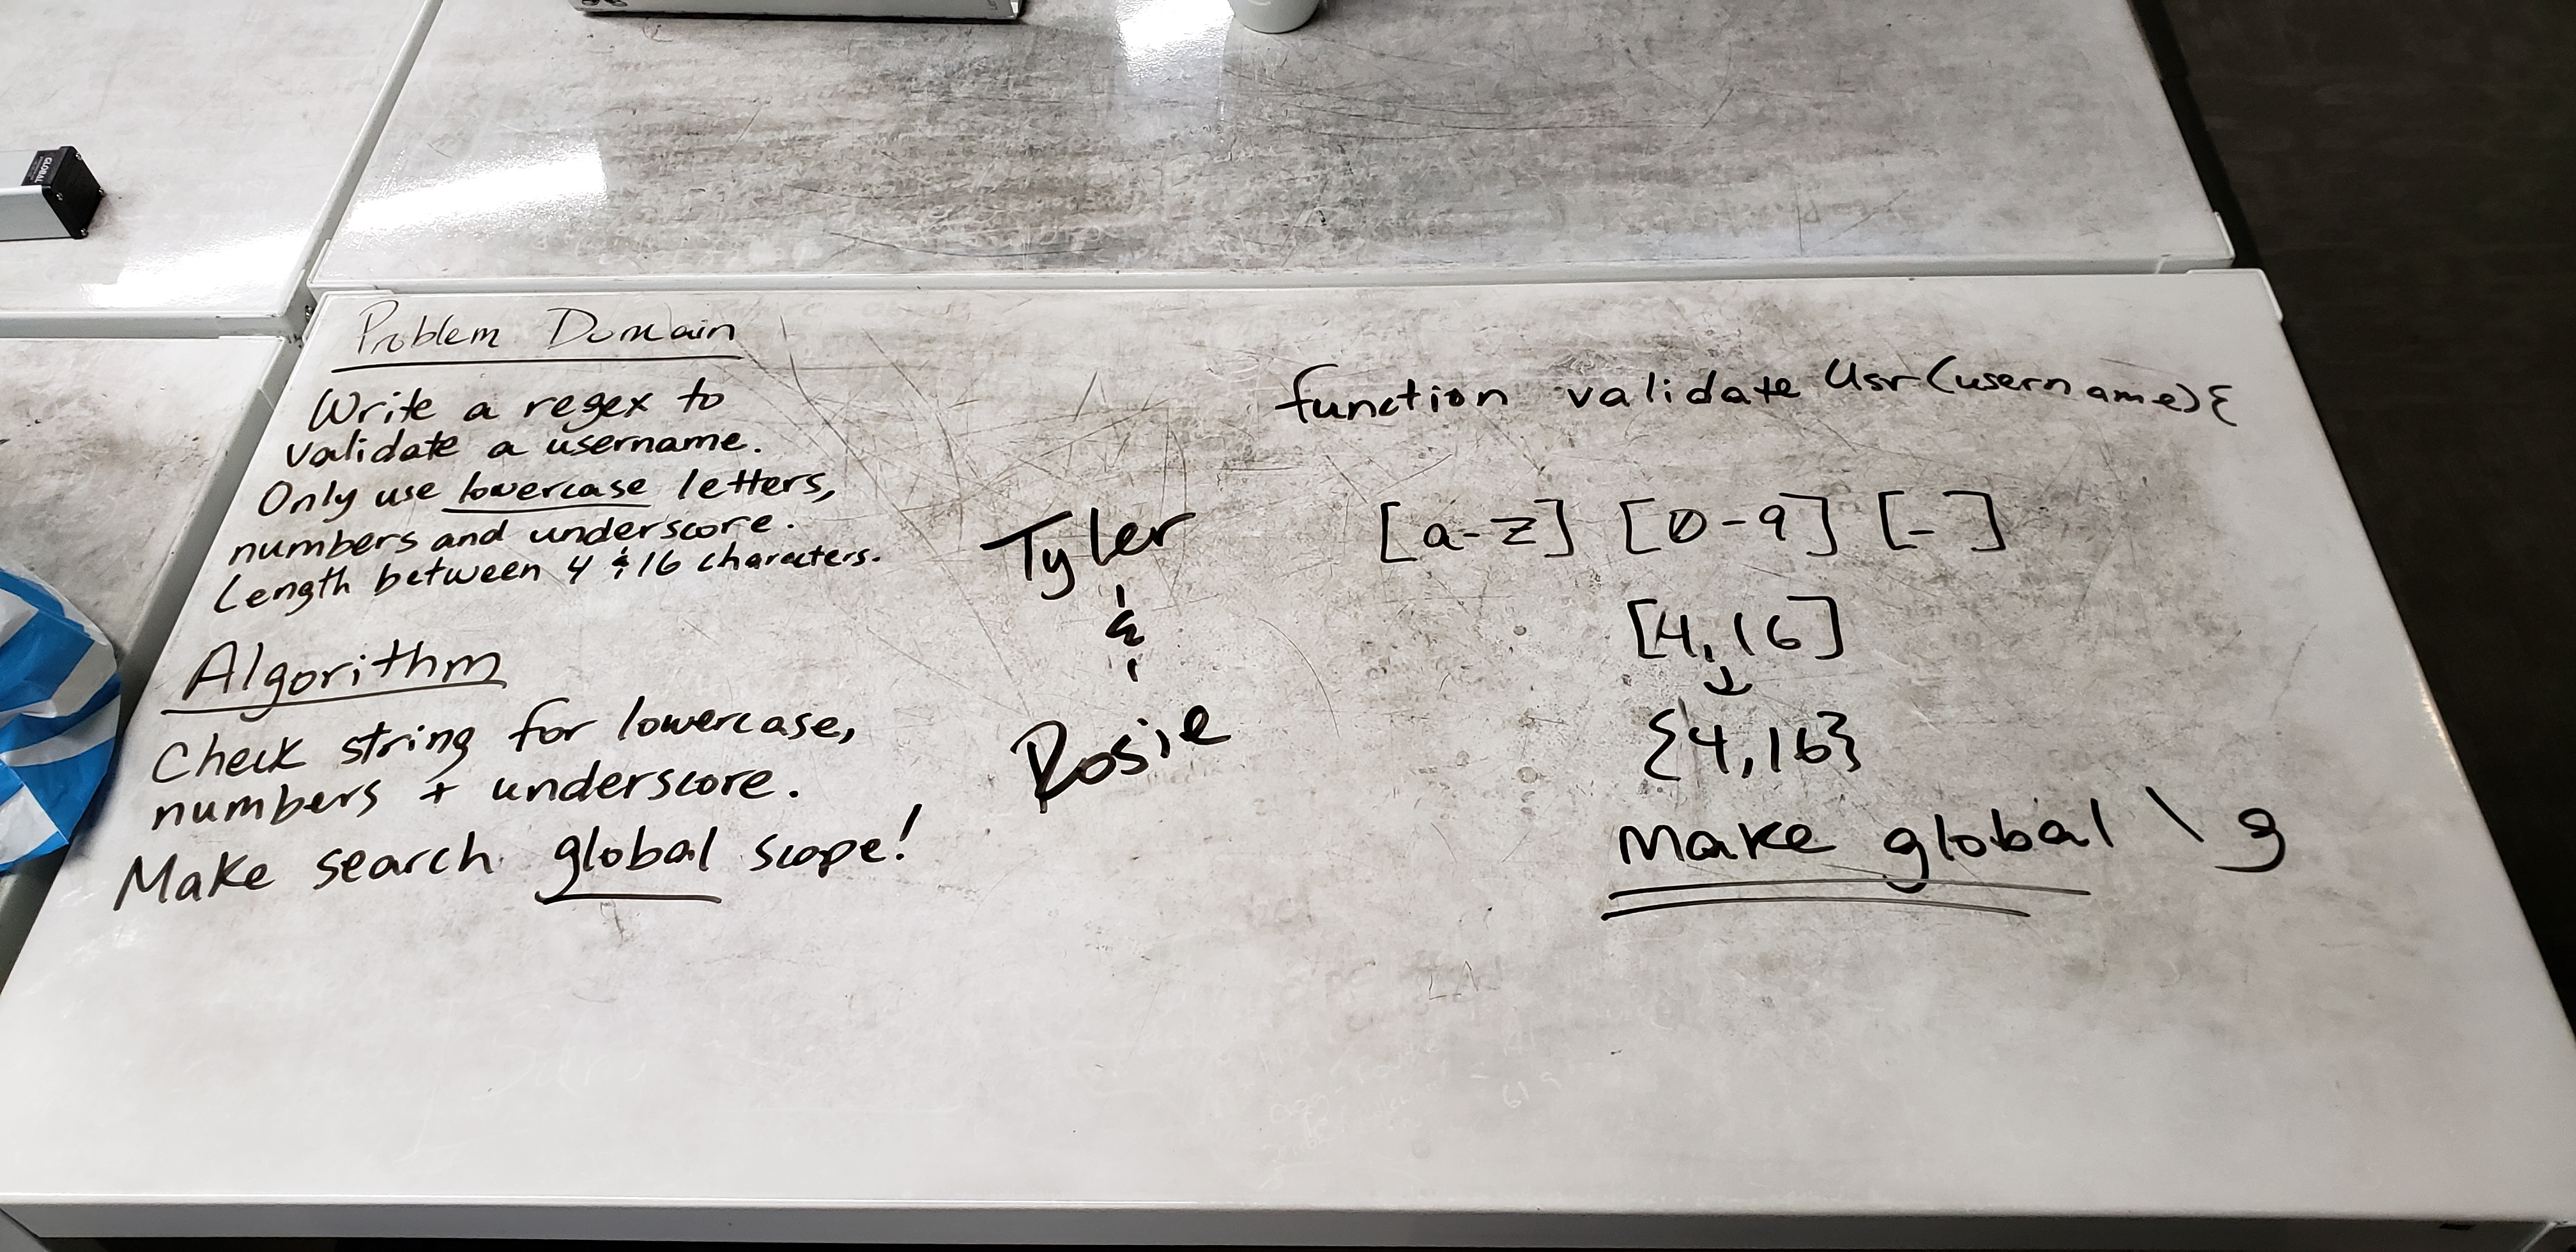 GLOBAL
Problem Domain
Write a regex to
validate a username.
Only use lowercase letters,
numbers and underscore.
Length between 4 & 16 characters.
Algorithm
Check string for lowercase,
numbers + underscore.
Make search global scope!
Tyler
&
Rosie
function validate Usr(username){
[a-z] [0-9] [-]
[4,16]
↓
{4,16}
Make global \g